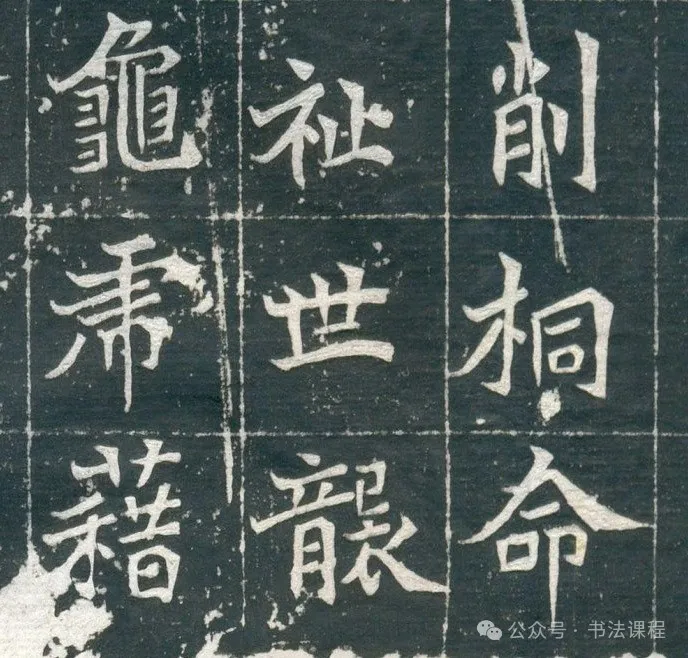 削桐命
祉世襲
龜虎藉
公众号 · 书法课程